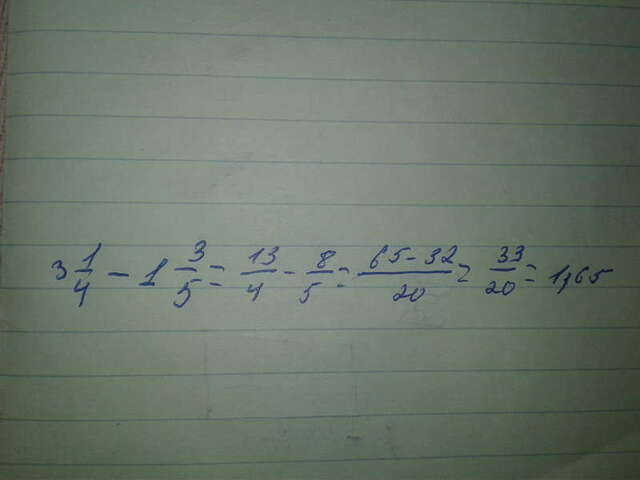 3 1/4 - 1 3/5 = 13/4 - 8/5 = 65-32/20 = 33/20 = 1,65